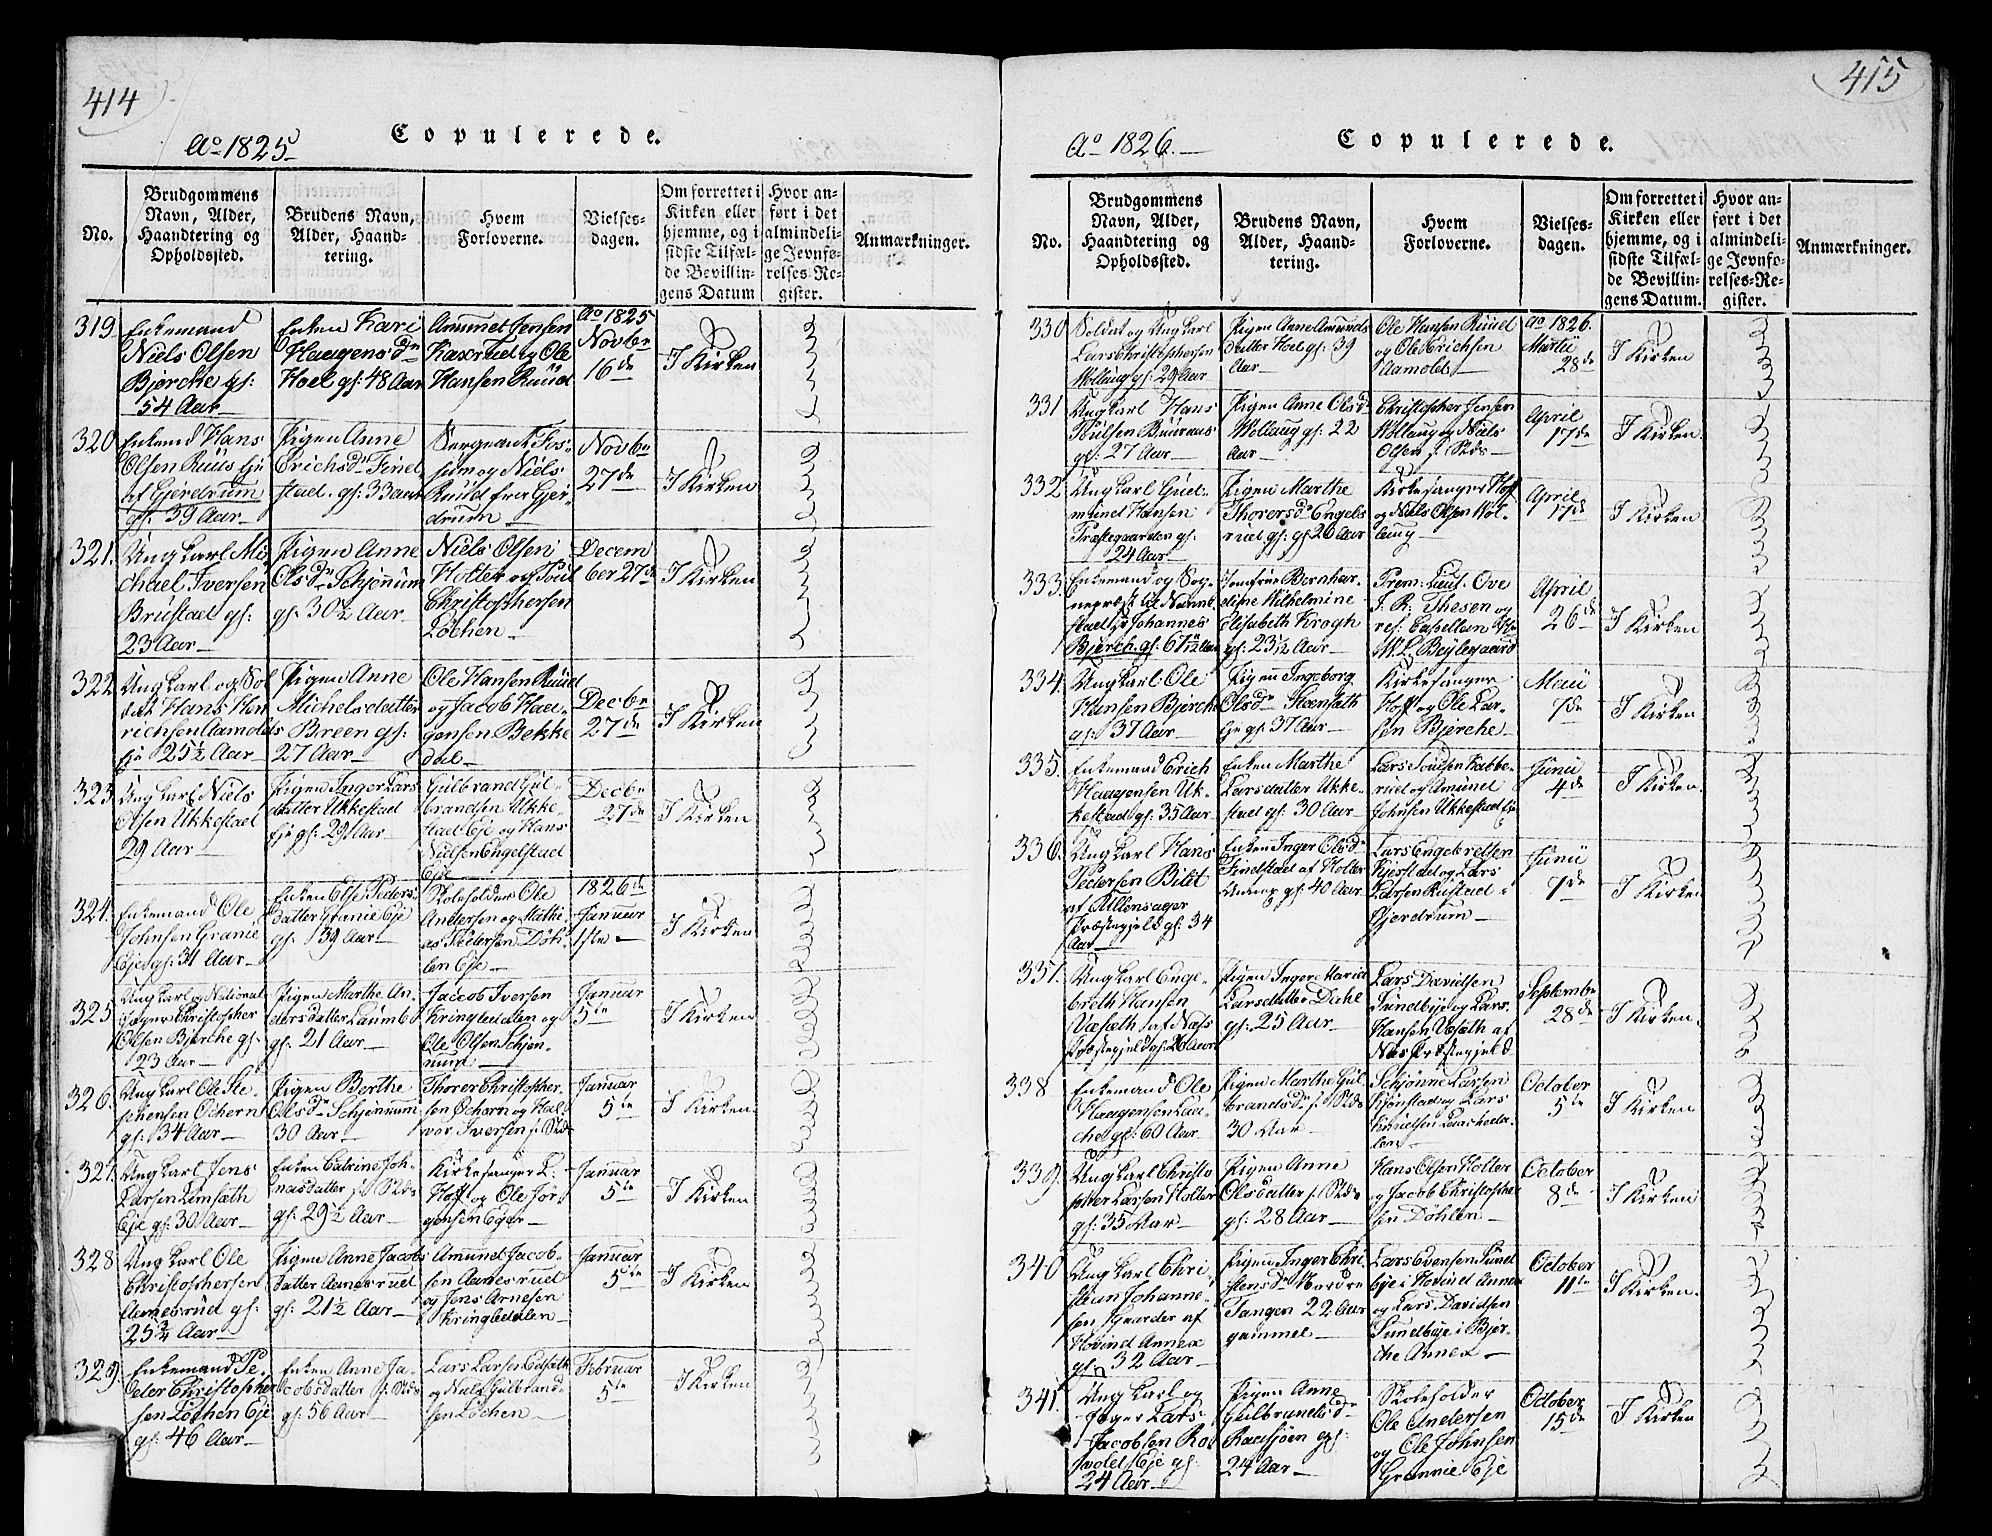 414
Aº 1825
Copulerede.
No.
Brudgommens
Navn, Alder,
Haandtering og
Opholdssted.
Brudens Navn,
Alder, Haand-
tering.
Hvem
Forloverne.
Vielses-
dagen.
Om forrettet i
Kirken eller
hjemme, og i
sidste Tilfæl-
de Bevillin-
gens Datum
Hvor an-
ført i det
almindeli-
ge Jevnfø-
relses-Re-
gister.
Anmærkninger.
319
Enkemand
Niels Olsen
Bjerche gs:
54 Aar
Enken Kari
Haagensdr
Hoel gs: 48 Aar
Amund Jensen
Kaxerud og Ole
Hansen Ruud
Aº 1825
Novbr
16de
I Kirken
320
Enkemd Hans
Olsen Ruus Eje
af Gjerdrum
gs: 39 Aar
Pigen Anne
Erichsdr Finel
stad. gs: 33 aar
Sergeant Fos-
sum og Niels
Ruud fra Gjer-
drum
Novbr
27de
I Kirken
321.
Ungkarl Mi-
chael Iversen
Brustad gs:
23 Aar
Pigen Anne
Olsdr Schjønum
gs: 30½ Aar
Niels Olsen
Holter og Poul
Christophersen
Løchen
Decem
ber 27de
I Kirken
322
Ungkarl og Sol
dat Hans Hen
richsen Aamolds
Eje 25½ Aar
Pigen Anne
Michelsdatter
Breen gs:
27 Aar
Ole Hansen Ruud
og Jacob Haa-
gensen Bekke
dal
Decbr
27de
I Kirken
323.
Ungkarl Niels
Olsen Ukkestad
29 Aar
Pigen Inger Lars
datter Ukkestad
Eje gs: 29 Aar
Gulbrand Gul-
brandsen Ukke-
stad Eje og Hans
Nielsen Engelstad
Eje
Decbr
27de
I Kirken
324.
Enkemand Ole
Johnsen Granie
Eje gs: 31 Aar
Enken Else Peders
datter Granie Eje
gs: 39 Aar
Skoleholder Ole
Andersen og Mathi
as Pedersen Døh-
len Eje
1826
Januar
1ste
I Kirken
325
Ungkarl og National
Jæger Christopher
Olsen Bjerche gs.
23 Aar
Pigen Marthe An-
dersdatter Laumb
gs: 21 Aar
Jacob Iversen
Kringledalen og
Ole Olsen Schjøn-
num
Januar
5te
I Kirken
326.
Ungkarl Ole Ste
phensen Ochern
gs: 34 Aar
Pigen Berthe
Olsdr Schjønum
30 Aar
Thorer Christopher
sen Ochern og Hal
vor Iversen j: Stds
Januar
5te
I Kirken.
327.
Ungkarl Jens
Larsen Limsæth
Eje gs: 30 Aar
Enken Catrine Joh-
nasdatter j: Stds
gs: 29½ Aar
Kirkesanger L:
Hoff og Ole Jør-
gensen Eger
Januar
5te
I Kirken
328
Ungkarl Ole
Christophersen
Aamesrud gs:
25¾ Aar
Pigen Anne Jacobs
datter Aamesrud
gs: 21½ Aar
Amund Jacob-
sen Aamesrud
og Jens Arnesen
Kringledalen
Januar
5te
I Kirken
329
Enkemand Pe-
der Christopher
sen Løchen Eje
gs: 46 Aar
Enken Anne Ja-
cobsdatter j: Stds
gs: 56 Aar
Lars Larsen Edsæth
og Niels Gulbrand-
sen Løchen
Februar
5te
I Kirken
415
Aº 1826.
Copulerede.
No.
Brudgommens
Navn, Alder,
Haandtering og
Opholdssted.
Brudens Navn,
Alder, Haand-
tering.
Hvem
Forloverne.
Vielses-
dagen.
Om forrettet i
Kirken eller
hjemme, og i
sidste Tilfæl-
de Bevillin-
gens Datum.
Hvor an-
ført i det
almindeli-
ge Jevnfø-
relses-Re-
gister.
Anmærkninger.
330
Soldat og Ungkarl
Lars Christophersen
Wollaug gs: 29 Aar
Pigen Anne Amunds
datter Hoel gs: 39
Aar
Ole Hansen Ruud
og Ole Erichsen
Aamold
Aº 1826.
Martii
28de
I Kirken
331
Ungkarl Hans
Poulsen Buuraas
gs: 27 Aar
Pigen Anne Olsdr
Wollaug gs: 22
Aar
Christopher Jensen
Wollaug og Niels
Olsen j. Stds
April
17de
I Kirken.
332
Ungkarl Gud-
mund Hansen
Præstegaarden gs.
24 Aar
Pigen Marthe
Thorersdr Engels
rud gs: gs 26 Aar
Kirkesanger Hoff
og Niels Olsen Wol-
laug
April
17de
I Kirken
333.
Enkemand og Sog-
nepræst til Nanne
stad Hr Johannes
Bjerch. gs: 61 Aar
Jomfrue Bernhar-
dine Wilhelmine
Elisabeth Krogh
gs: 23 Aar
Prem: Leut: Ove
J. R: Thesen og
res: Capellan Hr
M. L. Beylegaard
April
26de
I Kirken
334.
Ungkarl Ole
Hansen Bjerche
gs: 37 Aar
Pigen Ingeborg
Olsdr Steensæth
Eje gs: 37 Aar
Kirkesanger
Hoff og Ole Lar-
sen Bjerche
Maii
7de
I Kirken
335.
Enkemand Erich
Haagensen Uk-
kestad gs: 35 Aar
Enken Marthe
Larsdatter Ukke-
stad gs: 30 Aar
Lars Poulsen Kabbe-
rud og Amund
Johnsen Ukkestad Eje
Junii
4de
I Kirken.
336.
Ungkarl Hans
Pedersen Bilit
af Ullensager
Præstegjeld gs: 34
Aar
Enken Inger Olsdr
Findstad af Holter
Annex gs: 40 Aar
Lars Engebretsen
Kjerstad og Lars
Larsen Rustad i
Gjerdrum
Junii
7de
I Kirken
337.
Ungkarl Enge-
breth Hansen
Væsæth af Næss
Præstegjeld gs: 26 Aar
Pigen Inger Maria
Larsdatter Dahl
gs: 25 Aar
Lars Davidsen
Sundbye og Lars
Hansen Vesæth af
Næs Præstegjeld
Septembr
28de
I Kirken.
338
Enkemand Ole
Haagensen Laa-
che gs: 60 Aar
Pigen Marthe Gul
brandsdr j. Stds
30 Aar
Schjønne Larsen
Kjønstad og Lars
October
5te
I Kirken
339.
Ungkarl Christo
pher Larsen Holter
gs: 35 Aar
Pigen Anne
Olsdatter j. Stds
gs: 28 Aar
Hans Olsen Holter
og Jacob Christopher
sen Døhlen
October
8de
I Kirken
340
Ungkarl Chri
stian Johanne-
sen Gaarder af
Hovind Annex
gs 32 Aar
Pigen Inger Chri
stensdr Nordre
Tangen 22 Aar
gammel
Lars Evensen Sund
bye i Hovind Annex
og Lars Davidsen
Sundbye i Bjer-
che Annex
October
11te
I Kirken.
341.
Ungkarl og
Jæger Lars
Jacobsen Ro-
svold Eje gs:
24 Aar
Pigen Anne
Gulbrandsdr
Raasjøen gs:
24 Aar
Skoleholder
Ole Andersen
og Ole Johnsen
Grannie Eje
October
15de
I Kirken